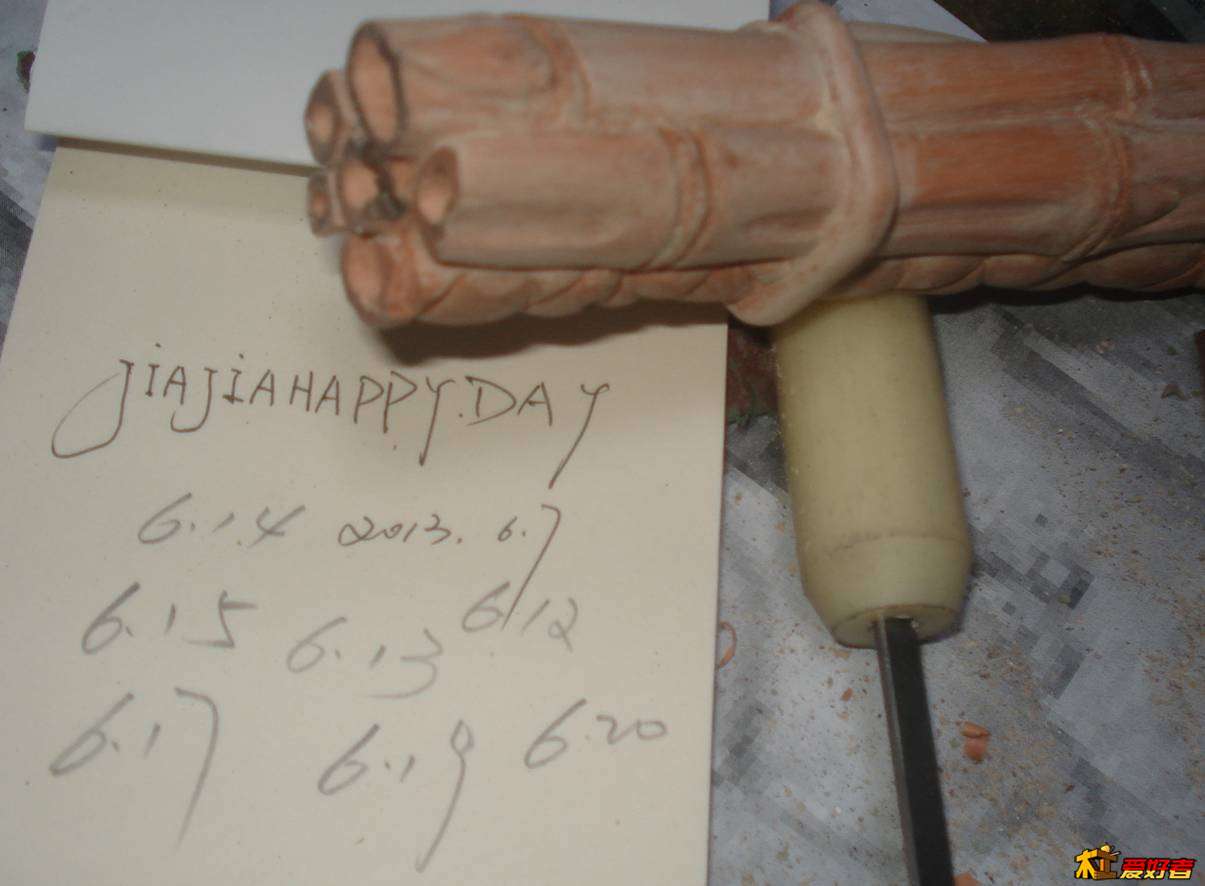 JIAJIA HAPPY.DAY
6.14 2013. 6.7
6.15 6.13 6.12
6.17 6.19 6.20
木工爱好者